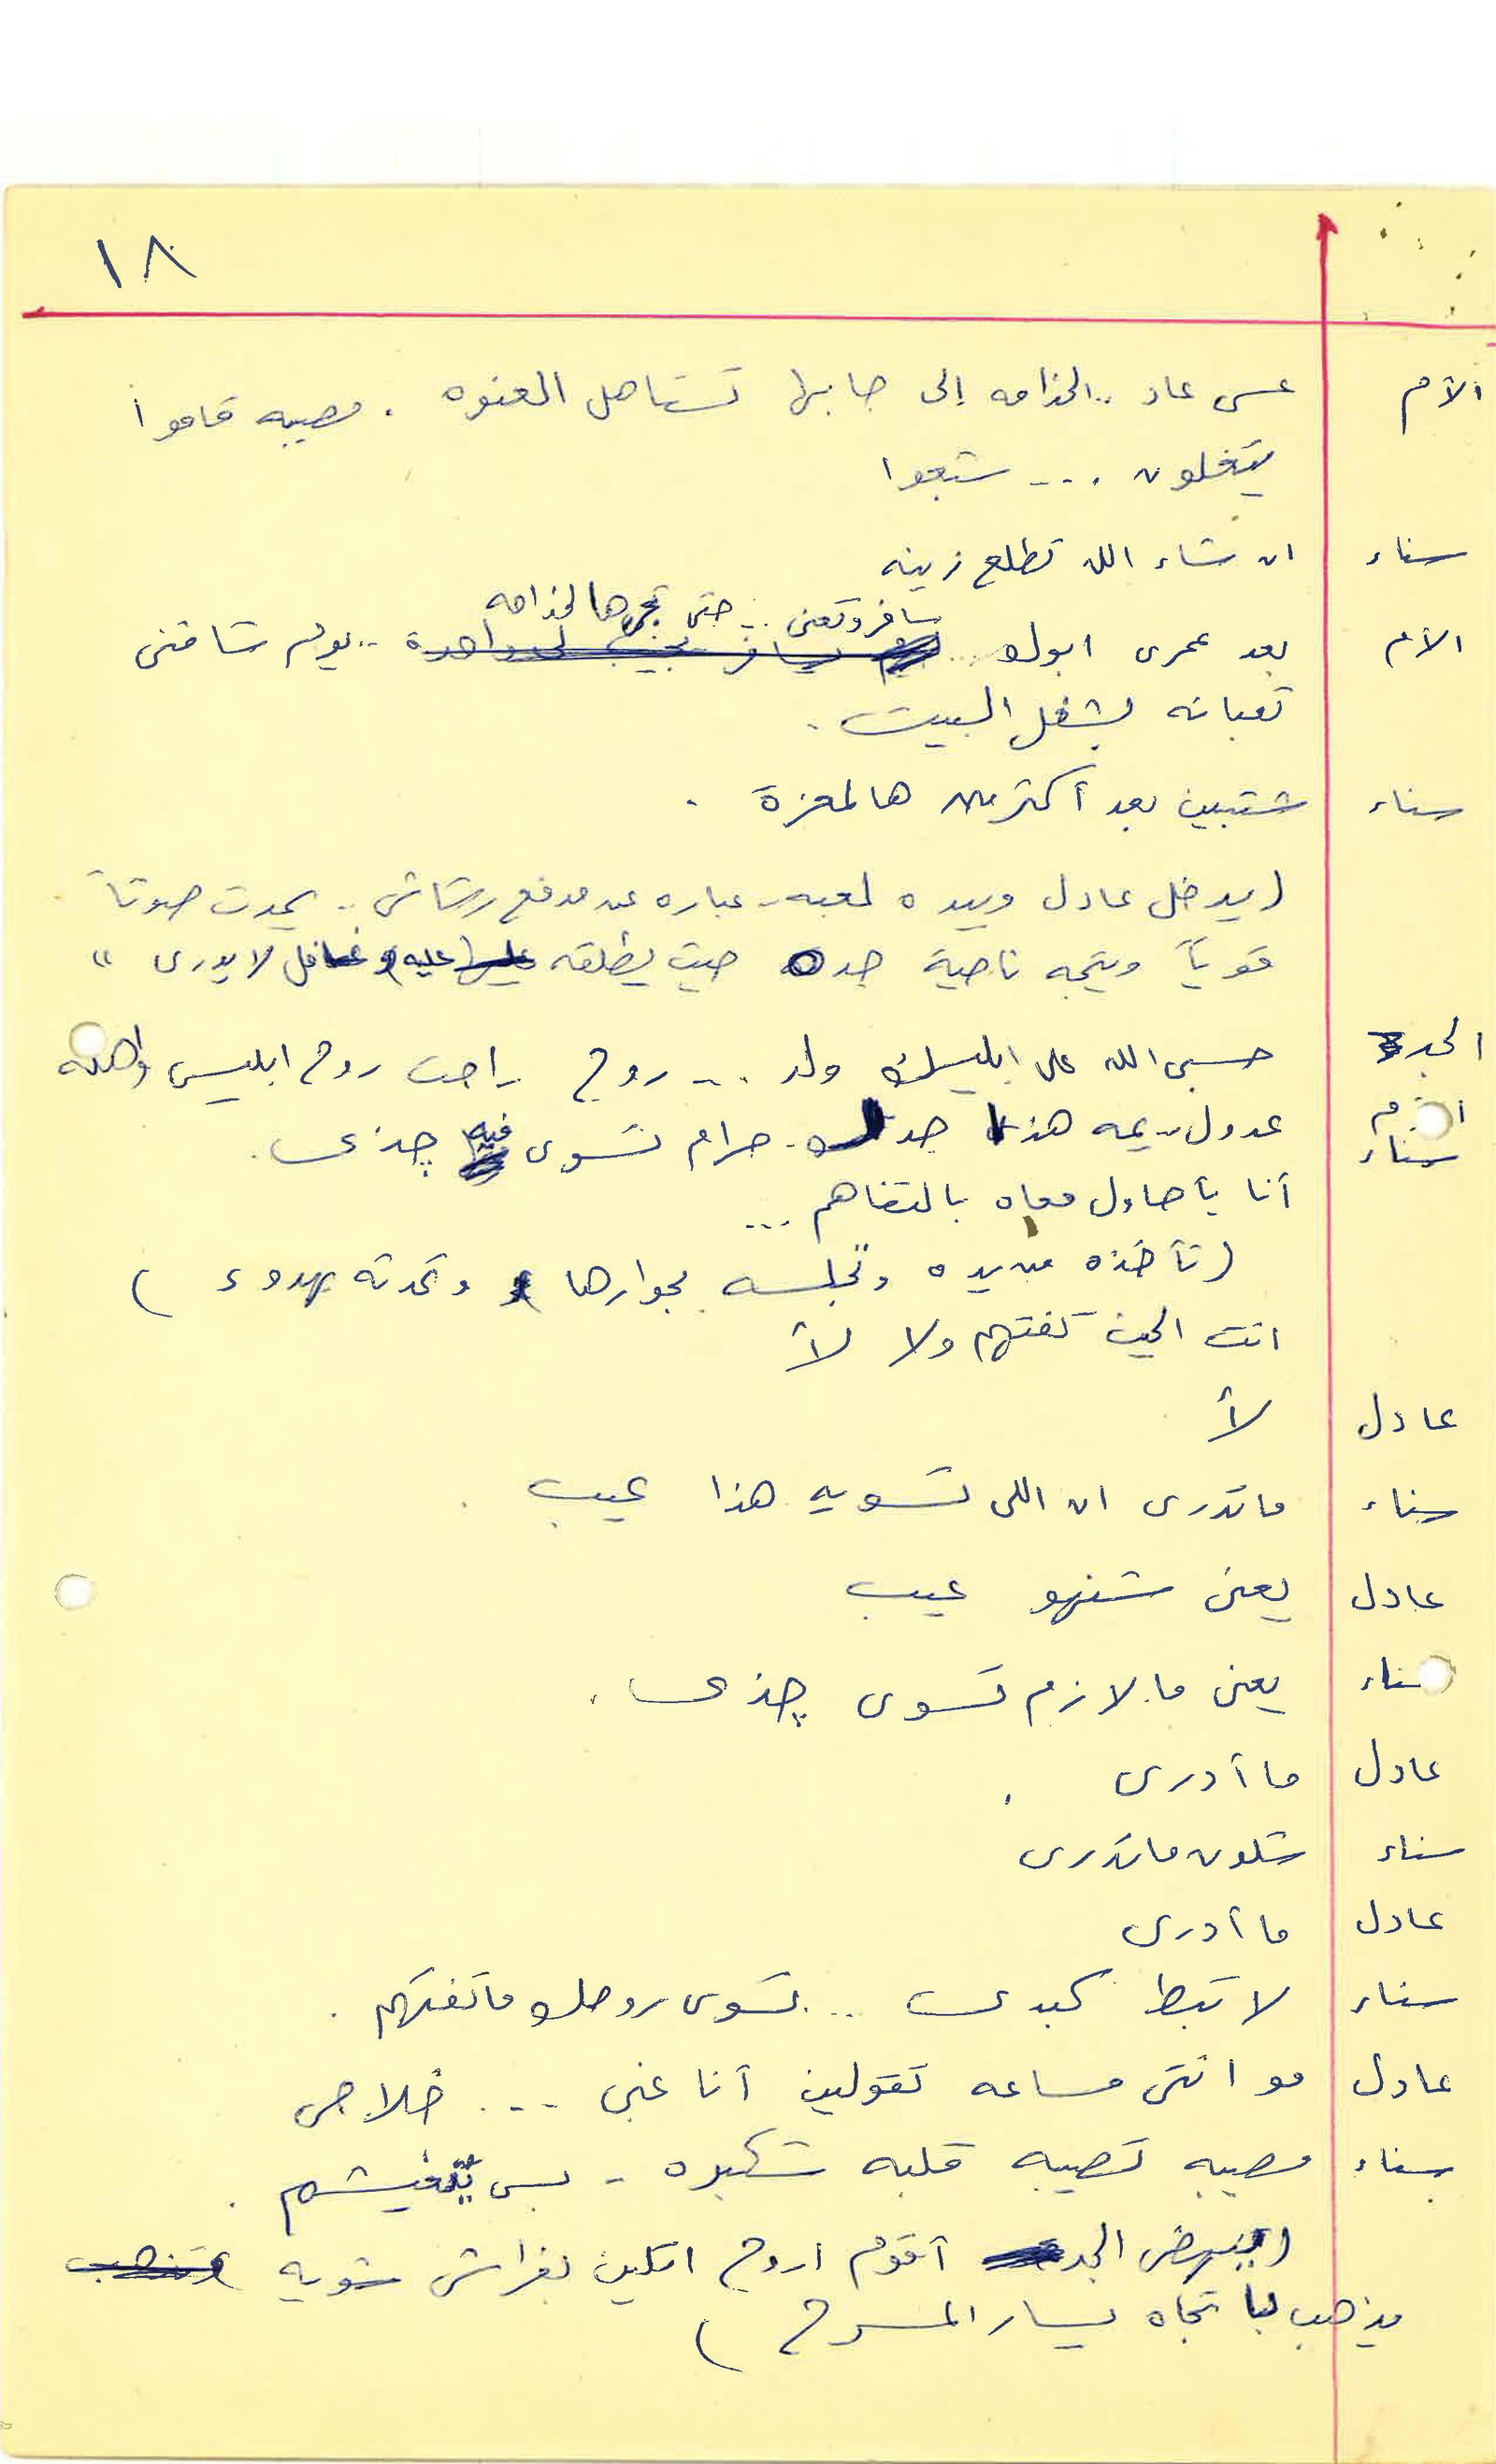 ١٨
الأم عسى عاد .. الخدامه إلى جايبها تستاهل العنوه . مصيبه قاموا
يتغلون ... شبعوا
سناء ان شاء الله تطلع زينه
سافر وتعنى .. حتى هالخدامه
الأم بعد عمرى ابوك .. يوم شافنى
تعبانه بشغل البيت .
سناء شتبين بعد أكثر من هالمعزة .
(يدخل عادل وبيده لعبه - عباره عن مدفع رشاش .. يحدث صوتاً
قوياً ويتجه ناحية جده حيث يطلقه عليه وغافل لا يدرى "
الجد حسبى الله على ابليسك ولد ... روح .. راحت روح ابليس واهله
الأم عدول .. يمه هذا جدك . حرام تسوى فيه چذى .
سناء أنا بأحاول معاه بالتفاهم ...
(تأخذه من يده وتجلسه بجوارها وتحدثه بهدوء )
انت الحين تفتهم ولا لأ
عادل لأ
سناء ما تدرى ان اللى تسويه هذا عيب .
عادل يعنى شنهو عيب
سناء يعنى ما لازم تسوى چذى .
عادل ما أدرى .
سناء شلون ما تدرى
عادل ما أدرى
سناء لا تبط كبدى .. تسوى روحك ما تفتهم .
عادل مو انتى مساعه تقولين أنا غبى ... خلاص
سناء مصيبه تصيبه قلبه شكبره - بس
(ينهض الجد أقوم اروح اتكين بفراشى شويه
يذهب باتجاه يسار المسرح )